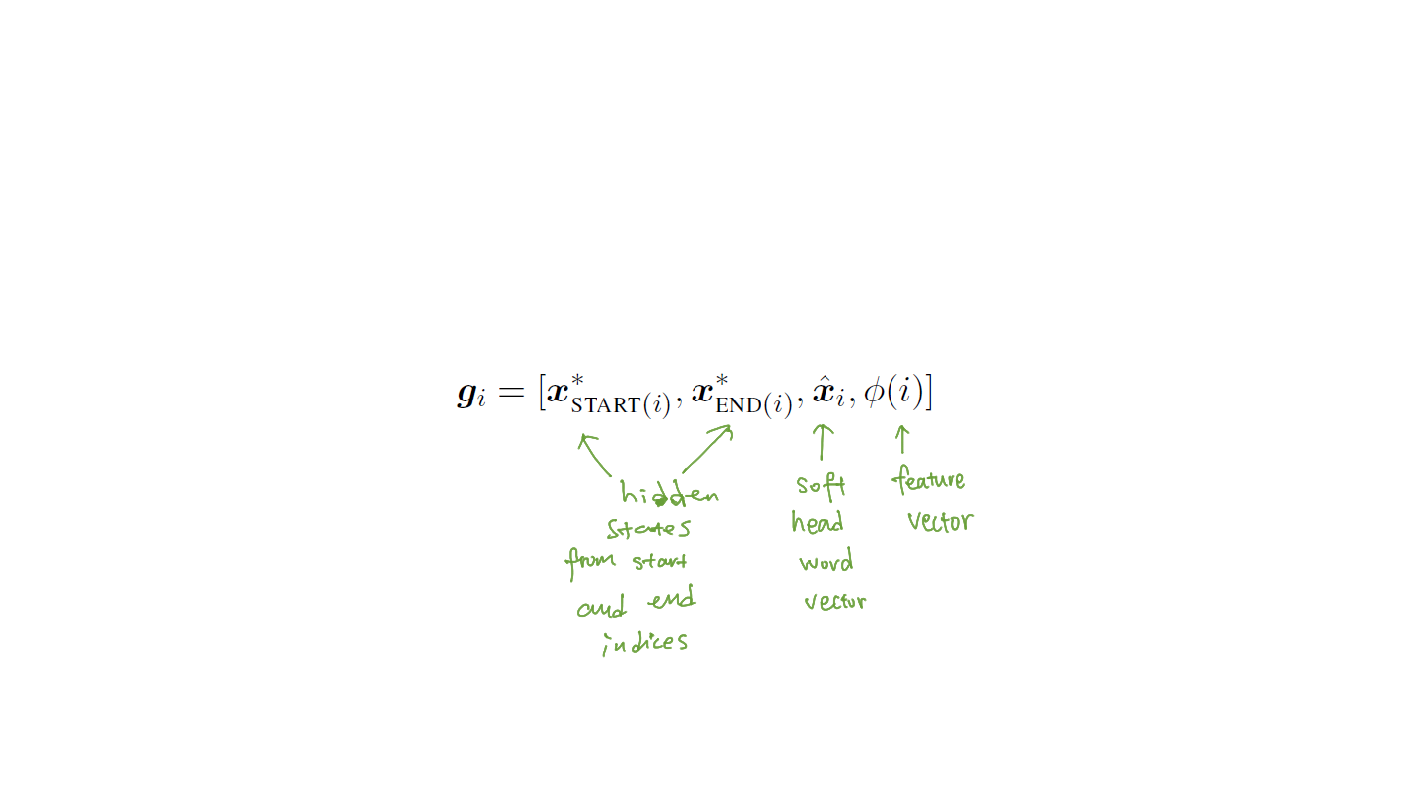 gᵢ = [x*START(i), x*END(i), x̂ᵢ, ϕ(i)]
hidden
states
from start
and end
indices
soft
head
word
vector
feature
vector